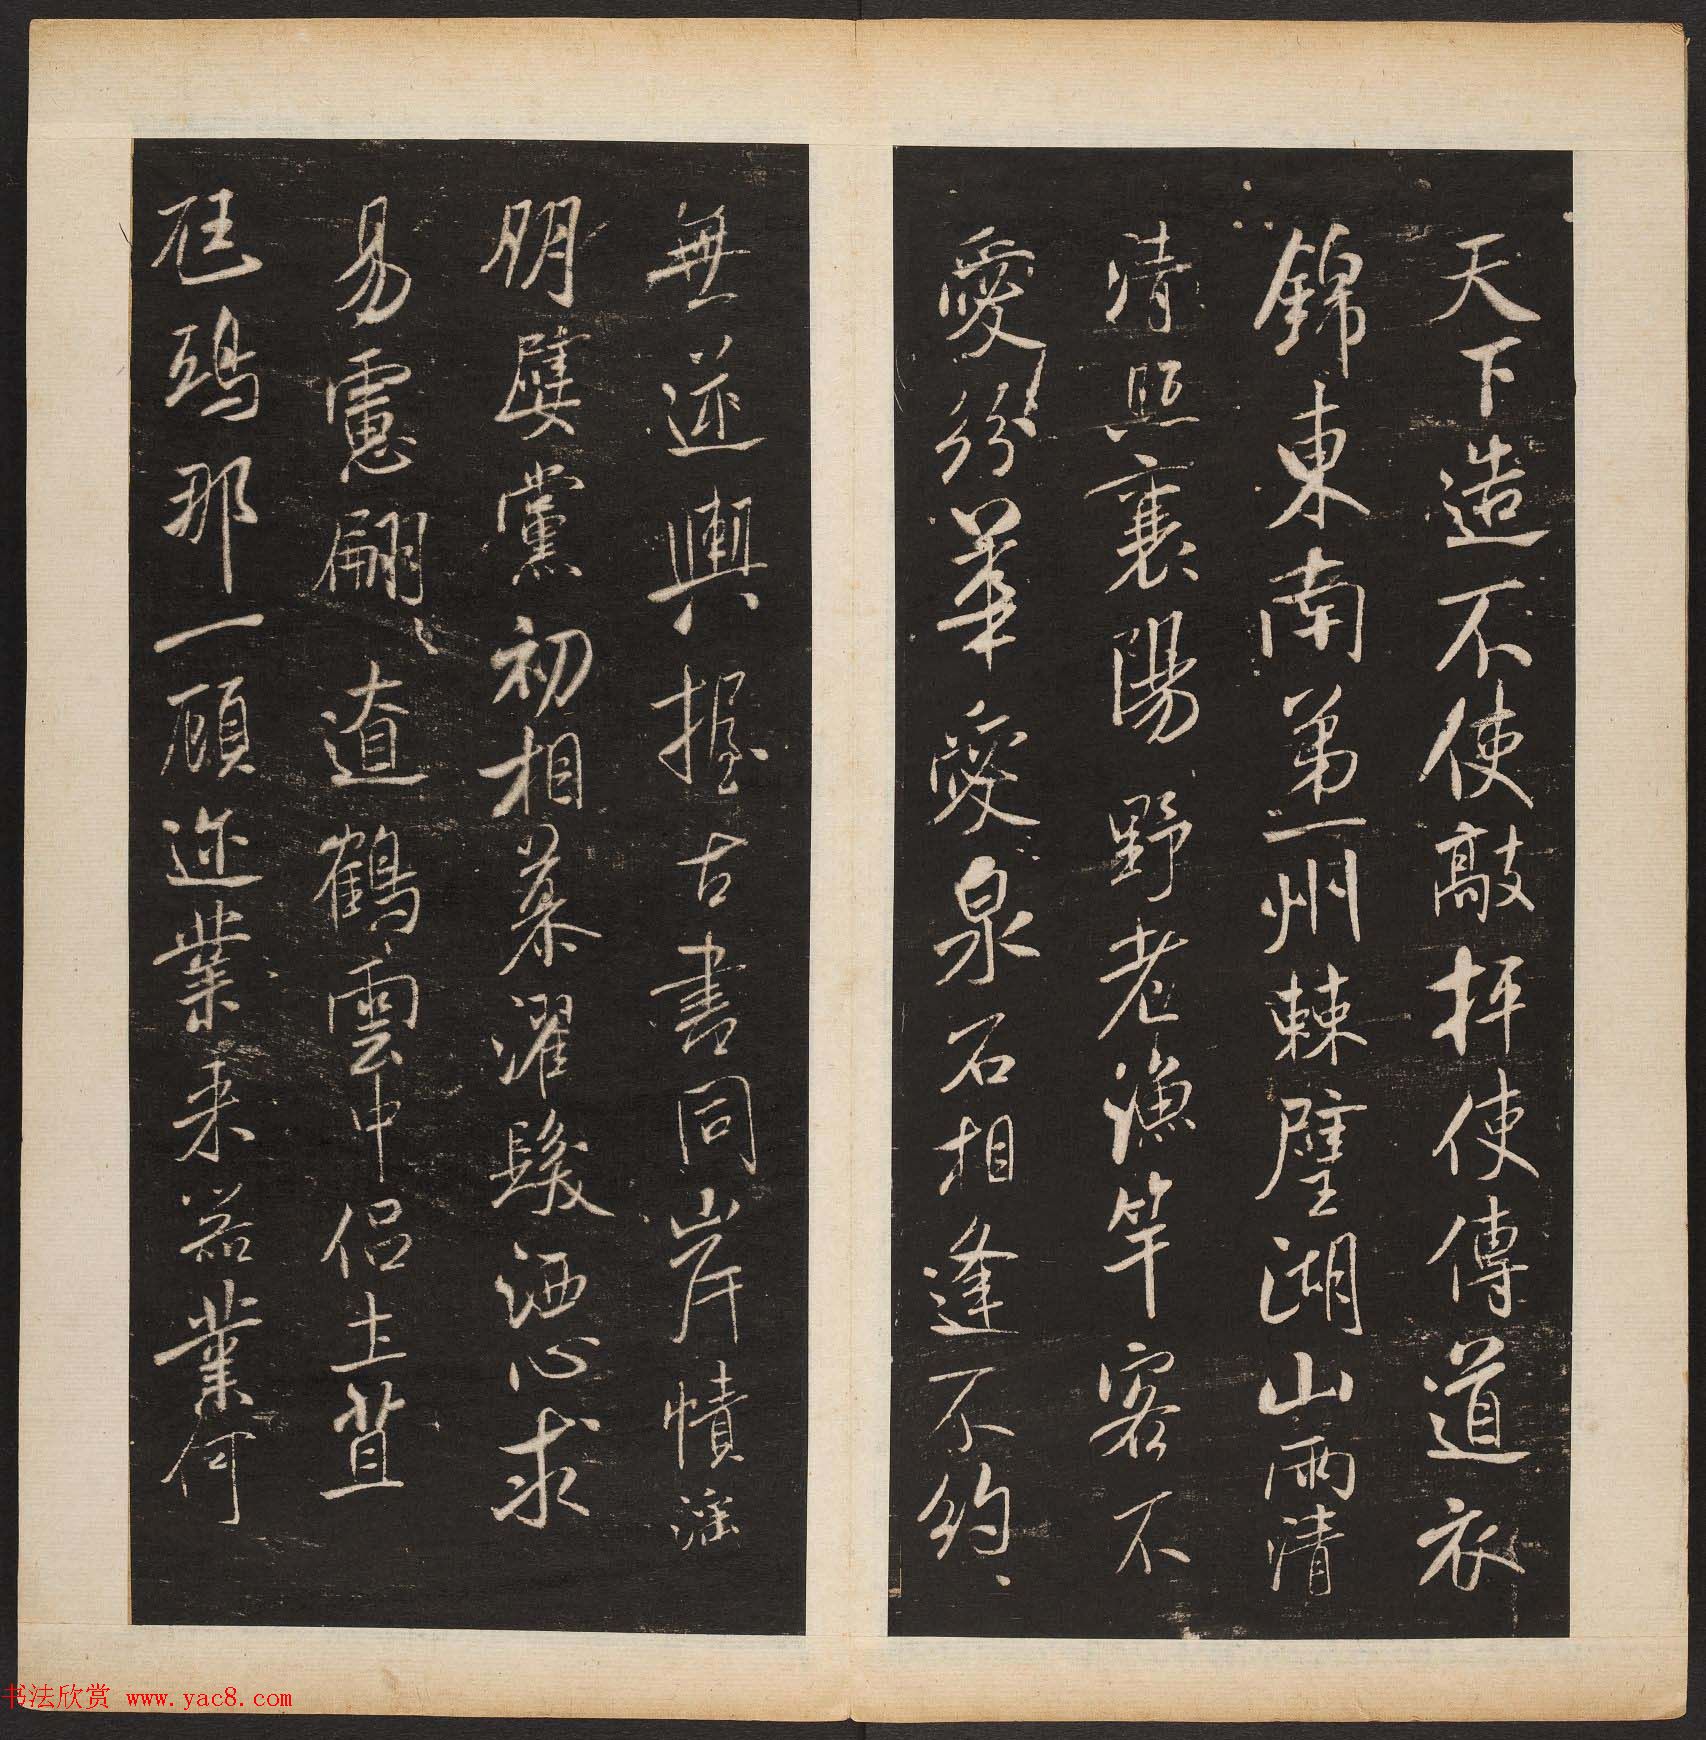 天下造不使敲枰使傳道衣
錦東南第一州棘璧湖山兩清
清照襄陽野老漁竿客不
愛紛華愛泉石相逢不約、
無逆輿握古書同岸幘淫
朋嬖黨初相慕濯髮洒心求
易慮翩、遼鶴雲中侶土苴
尪鴟那一顧迩業来器業何
书法欣赏 www.yac8.com